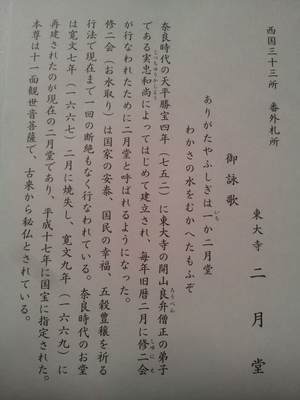 西国三十三所　番外札所
東大寺　二月堂
御詠歌
ありがたやふしぎは一か二月堂
わかさの水をむかへたもふぞ
奈良時代の天平勝宝四年（七五二）に東大寺の開山良弁僧正の弟子
である実忠和尚によってはじめて建立され、毎年旧暦二月に修二会
が行なわれたために二月堂と呼ばれるようになった。
修二会（お水取り）は国家の安泰、国民の幸福、五穀豊穣を祈る
行法で現在まで一回の断絶もなく行なわれている。奈良時代のお堂
は寛文七年（一六六七）二月に焼失し、寛文九年（一六六九）に
再建されたのが現在の二月堂であり、平成十七年に国宝に指定された。
本尊は十一面観世音菩薩で、古来から秘仏とされている。